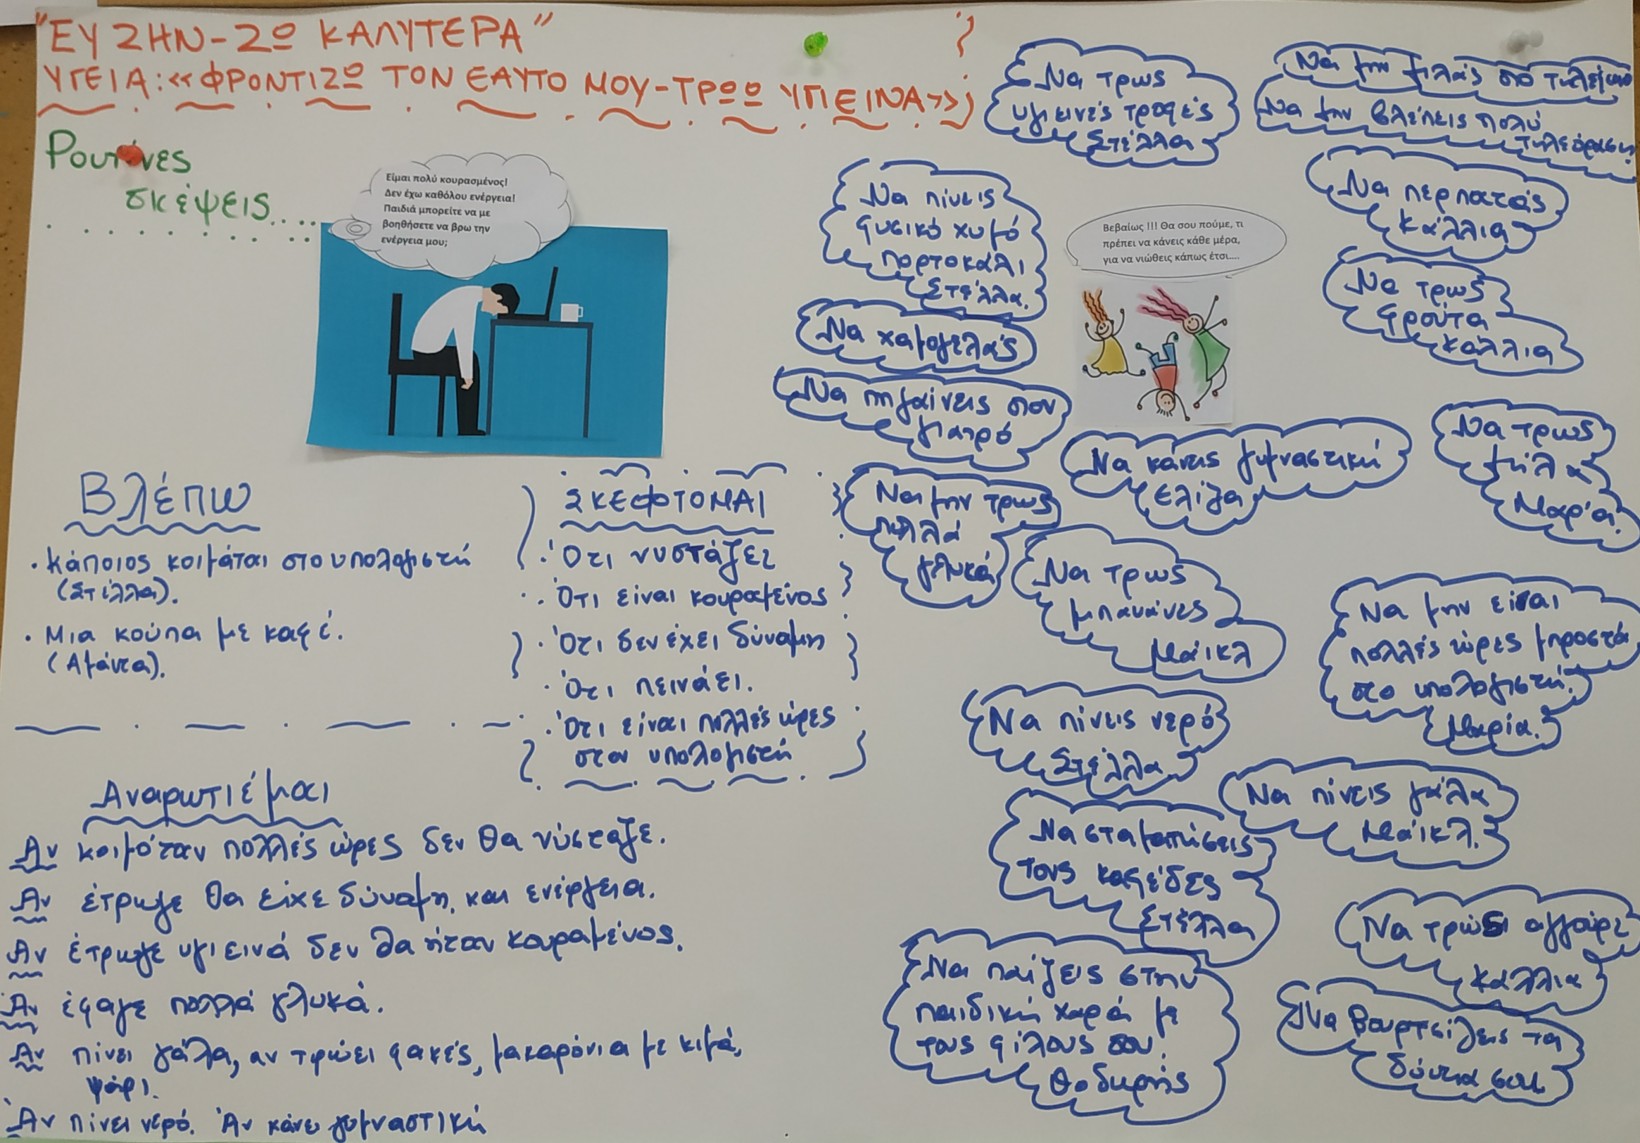 "ΕΥ ΖΗΝ-ΖΩ ΚΑΛΥΤΕΡΑ"
ΥΓΕΙΑ: «ΦΡΟΝΤΙΖΩ ΤΟΝ ΕΑΥΤΟ ΜΟΥ-ΤΡΩΩ ΥΓΙΕΙΝΑ»
Ρουτίνες
σκέψεις....
Είμαι πολύ κουρασμένος!
Δεν έχω καθόλου ενέργεια!
Παιδιά μπορείτε να με
βοηθήσετε να βρω την
ενέργεια μου;
Βλέπω
· Κάποιος κοιμάται στο υπολογιστή
(Στέλλα).
· Μια κούπα με καφέ.
(Αμάντα).
ΣΚΕΦΤΟΜΑΙ
· Ότι νυστάζει
· Ότι είναι κουρασμένος
· Ότι δεν έχει δύναμη
· Ότι πεινάει.
· Ότι είναι πολλές ώρες
στον υπολογιστή
Αναρωτιέμαι
Αν κοιμόταν πολλές ώρες δεν θα νύσταζε.
Αν έτρωγε θα είχε δύναμη και ενέργεια.
Αν έτρωγε υγιεινά δεν θα ήταν κουραμένος.
Αν έφαγε πολλά γλυκά.
Αν πίνει γάλα, αν τρώει φακές, μακαρόνια με κιμά,
ψάρι.
Αν πίνει νερό. Αν κάνει γυμναστική
Να τρως
υγιεινές τροφές
Στέλλα
Να μην μιλάς στο τηλέφωνο
Να μην βλέπεις πολύ
τηλεόραση
Να πίνεις
φυσικό χυμό
πορτοκάλι
Στέλλα.
Βεβαίως !!! Θα σου πούμε, τι
πρέπει να κάνεις κάθε μέρα,
για να νιώθεις κάπως έτσι....
Να περπατάς
Κάλλια
Να τρως
φρούτα
Κάλλια
Να χαμογελάς
Να πηγαίνεις στον
γιατρό
Να κάνεις γυμναστική
Ελίζα
Να τρως
μήλα
Μαρία.
Να μην τρως
πολλά
γλυκά
Να τρως
μπανάνες
Μάικλ
Να μην είσαι
πολλές ώρες μπροστά
στο υπολογιστή.
Μαρία.
Να πίνεις νερό
Στέλλα
Να πίνεις γάλα
Μάικλ.
Να σταματήσεις
τους καφέδες
Στέλλα
Να τρως αγγούρι
Κάλλια
Να παίζεις στην
παιδική χαρά με
τους φίλους σου!
Θοδωρής
Να βουρτσίζεις τα
δόντια σου